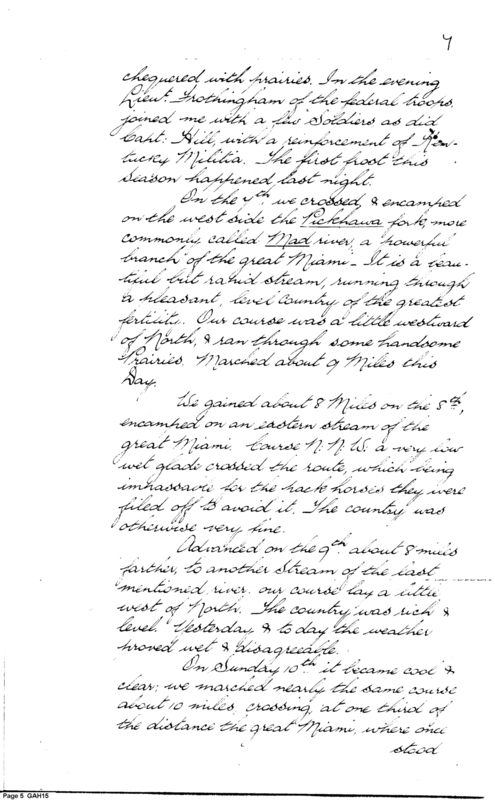 7
chequered with prairies. In the evening
Lieut. Frothingham of the federal troops,
joined me with a few Soldiers as did
Capt: Hill, with a reinforcement of Ken-
tucky Militia. The first frost this
season happened last night.
On the 7th we crossed, & encamped
on the west side the Pickhawa fork, more
commonly called Mad river, a powerful
branch of the great Miami - It is a beau-
tiful but rapid stream, running through
a pleasant, level country of the greatest
fertility. Our course was a little westward
of North, & ran through some handsome
Prairies. Marched about 9 Miles this
Day.
We gained about 8 Miles on the 8th,
encamped on an eastern stream of the
great Miami. Course N.N.W. a very low
wet glade crossed the route, which being
impassable for the pack horses they were
filed off to avoid it. The country was
otherwise very fine.
Advanced on the 9th about 8 miles
farther, to another stream of the last
mentioned river, our course lay a little
west of North. The country was rich &
level. Yesterday & to day the weather
proved wet & disagreeable.
On Sunday 10th it became cool &
clear; we marched nearly the same course
about 10 miles, crossing, at one third of
the distance the great Miami, where once
stood
Page 5 GAH15